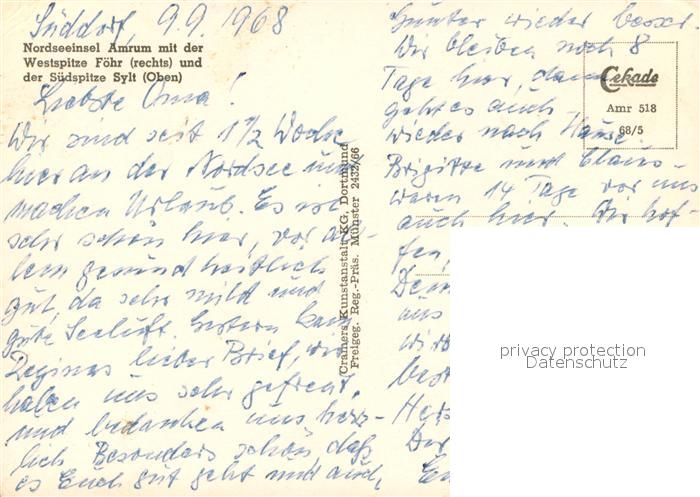 Süddorf, 9.9.1968
Nordseeinsel Amrum mit der
Westspitze Föhr (rechts) und
der Südspitze Sylt (Oben)
Liebste Oma!
Wir sind seit 1 1/2 Woche
hier an der Nordsee und
machen Urlaub. Es ist
sehr schön hier, vor al-
lem gesundheitlich
gut, da sehr mild und
gute Seeluft. Gestern kam
Reginas lieber Brief, wir
haben uns sehr gefreut
und bedanken uns herz-
lich. Besonders schön, daß
es Euch gut geht und auch
Cramers Kunstanstalt KG, Dortmund
Freigeg. Reg.-Präs. Münster 2432/66
Günter wieder besser.
Wir bleiben noch 8
Tage hier, dann
geht es auch
wieder nach Hause.
Brigitte und Claus
waren 14 Tage vor uns
auch hier. Wir hof-
fen,
aus
wird
best
Cekade
Amr 518
68/5
privacy protection
Datenschutz